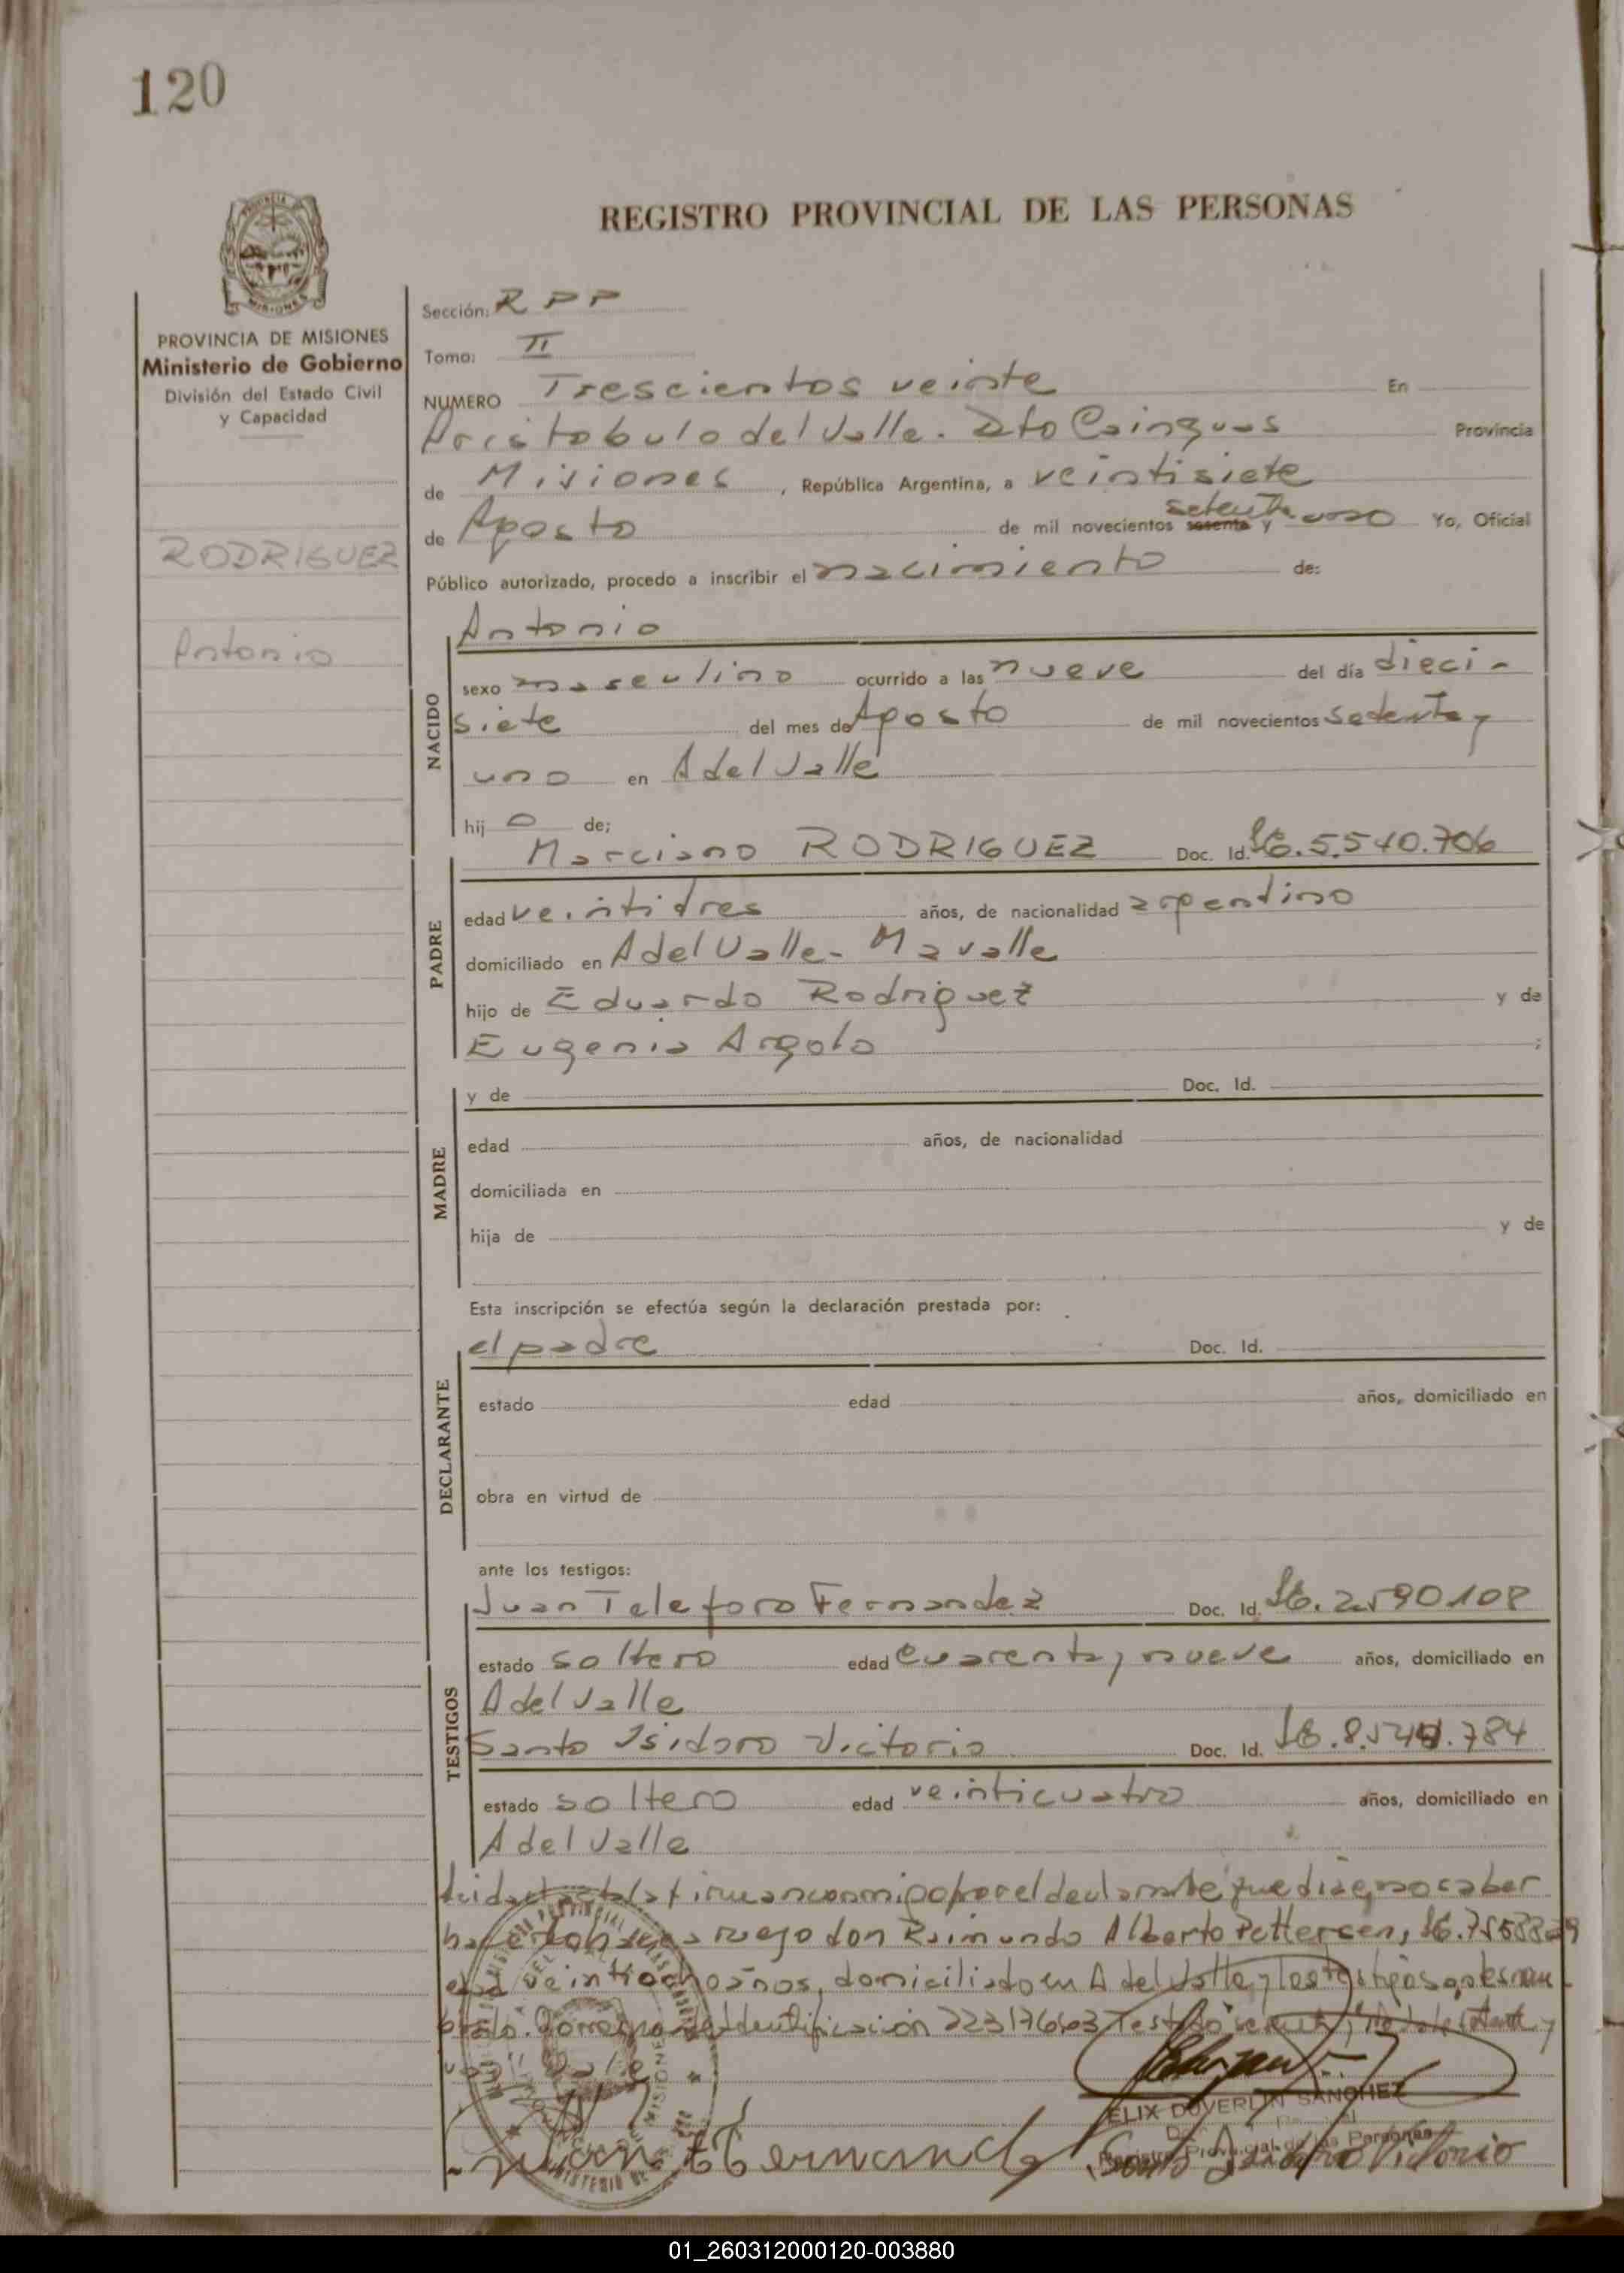 120
REGISTRO PROVINCIAL DE LAS PERSONAS
PROVINCIA DE MISIONES
Ministerio de Gobierno
División del Estado Civil
y Capacidad
RODRIGUEZ
Antonio
Sección: RPP
Tomo: II
NUMERO Trescientos veinte En
Aristobulo del Valle. Dto Cainguas Provincia
de Misiones, República Argentina, a veintisiete
de Agosto de mil novecientos sesenta setenta y uno Yo, Oficial
Público autorizado, procedo a inscribir el nacimiento de:
Antonio
NACIDO
sexo masculino ocurrido a las nueve del día dieci-
siete del mes de Agosto de mil novecientos setenta y
uno en A del Valle
hijo de;
Marciano RODRIGUEZ Doc. Id. 5.540.706
PADRE
edad veintitres años, de nacionalidad argentino
domiciliado en A del Valle- Mavalle
hijo de Eduardo Rodriguez y de
Eugenia Argolo ;
MADRE
y de Doc. Id.
edad años, de nacionalidad
domiciliada en
hija de y de
Esta inscripción se efectúa según la declaración prestada por:
el padre Doc. Id.
DECLARANTE
estado edad años, domiciliado en
obra en virtud de
ante los testigos:
Juan Teleforo Fernandez Doc. Id. 2590108
TESTIGOS
estado soltero edad cuarenta y nueve años, domiciliado en
A del Valle
Santo Isidoro Victorio Doc. Id. 784
estado soltero edad veinticuatro años, domiciliado en
A del Valle
firman conmigo por el declarante que dice no saber
hacerlo ruego don Raimundo Alberto Pettersen,
edad veintiocho años, domiciliado en A del Valle y los testigos
Identificación
Vale
Juan T Fernandez
FELIX DUVERLIN SANCHEZ
Registro Provincial de las Personas
Santo Isidoro Victorio
01_260312000120-003880